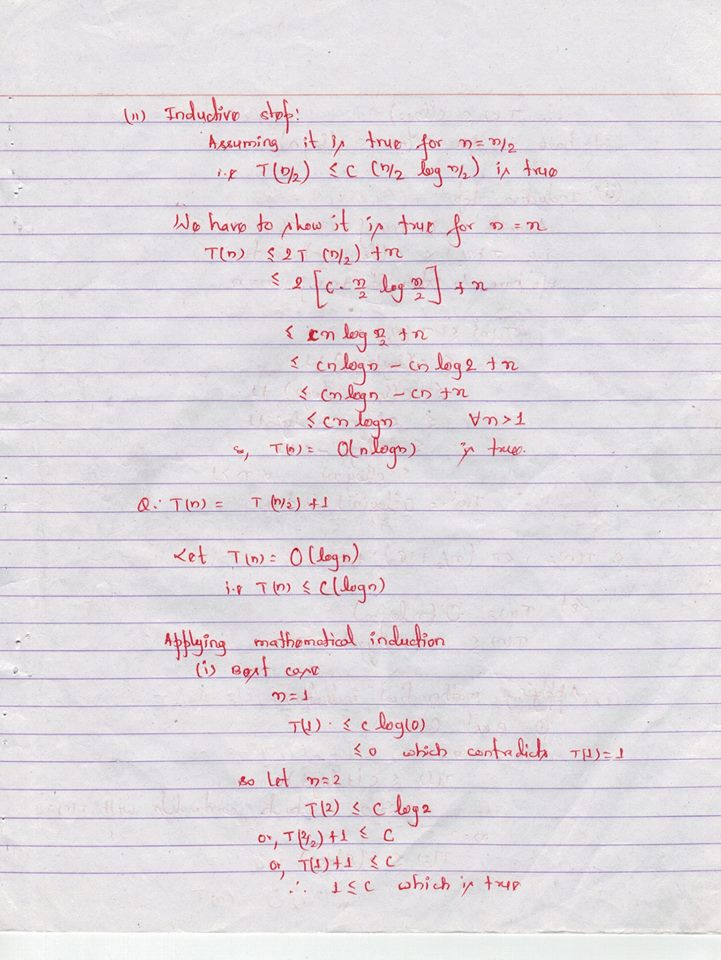 (ii) Inductive step:
Assuming it is true for n = n/2
i.e T(n/2) ≤ C (n/2 log n/2) is true
We have to show it is true for n = n
T(n) ≤ 2T (n/2) + n
≤ 2 [C · n/2 log n/2] + n
≤ cn log n/2 + n
≤ cn logn - cn log2 + n
≤ cn logn - cn + n
≤ cn logn ∀n>1
so, T(n) = O(n logn) is true.
Q: T(n) = T(n/2) + 1
Let T(n) = O(logn)
i.e T(n) ≤ C(logn)
Applying mathematical induction
(i) Best case
n=1
T(1) · ≤ c log(0)
≤ 0 which contradicts T(1)=1
so let n=2
T(2) ≤ c log2
or, T(2/2) + 1 ≤ C
or, T(1) + 1 ≤ C
∴ 1 ≤ C which is true